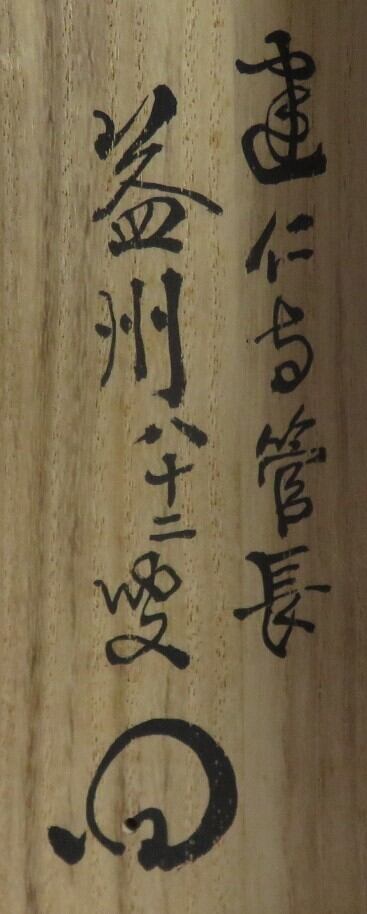 建仁寺管長
益州八十二叟